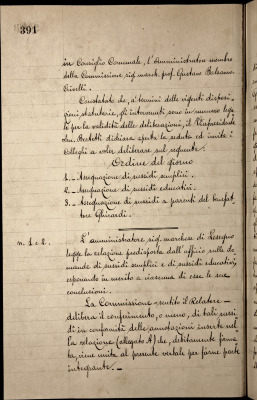 391
in Consiglio Comunale, l'Amministratore membro
della Commissione sig. march. prof. Gustavo Balsamo-
Crivelli.
Constatato che, a termini delle vigenti disposi-
zioni statutarie, gli intervenuti sono in numero lega-
le per la validità delle deliberazioni, il Vicepresidente
dichiara aperta la seduta ed invita i
Colleghi a voler deliberare sul seguente:
Ordine del giorno
1.- Assegnazione di sussidi semplici.
2.- Assegnazione di sussidi educativi.
3.- Assegnazione di sussidi a parenti del benefat-
tore Ghinardi.
n. 1 e 2.
L'amministratore sig. marchese di
legge la relazione predisposta dall'ufficio sulle do-
mande di sussidi semplici e di sussidi educativi,
esponendo in merito a ciascuna di esse le sue
conclusioni.
La Commissione - sentito il Relatore -
delibera il conferimento, o meno, di tali sussi-
di in conformità delle annotazioni inserte nel-
la relazione (allegato A) che, debitamente firma-
ta, viene unita al presente verbale per farne parte
integrante. -